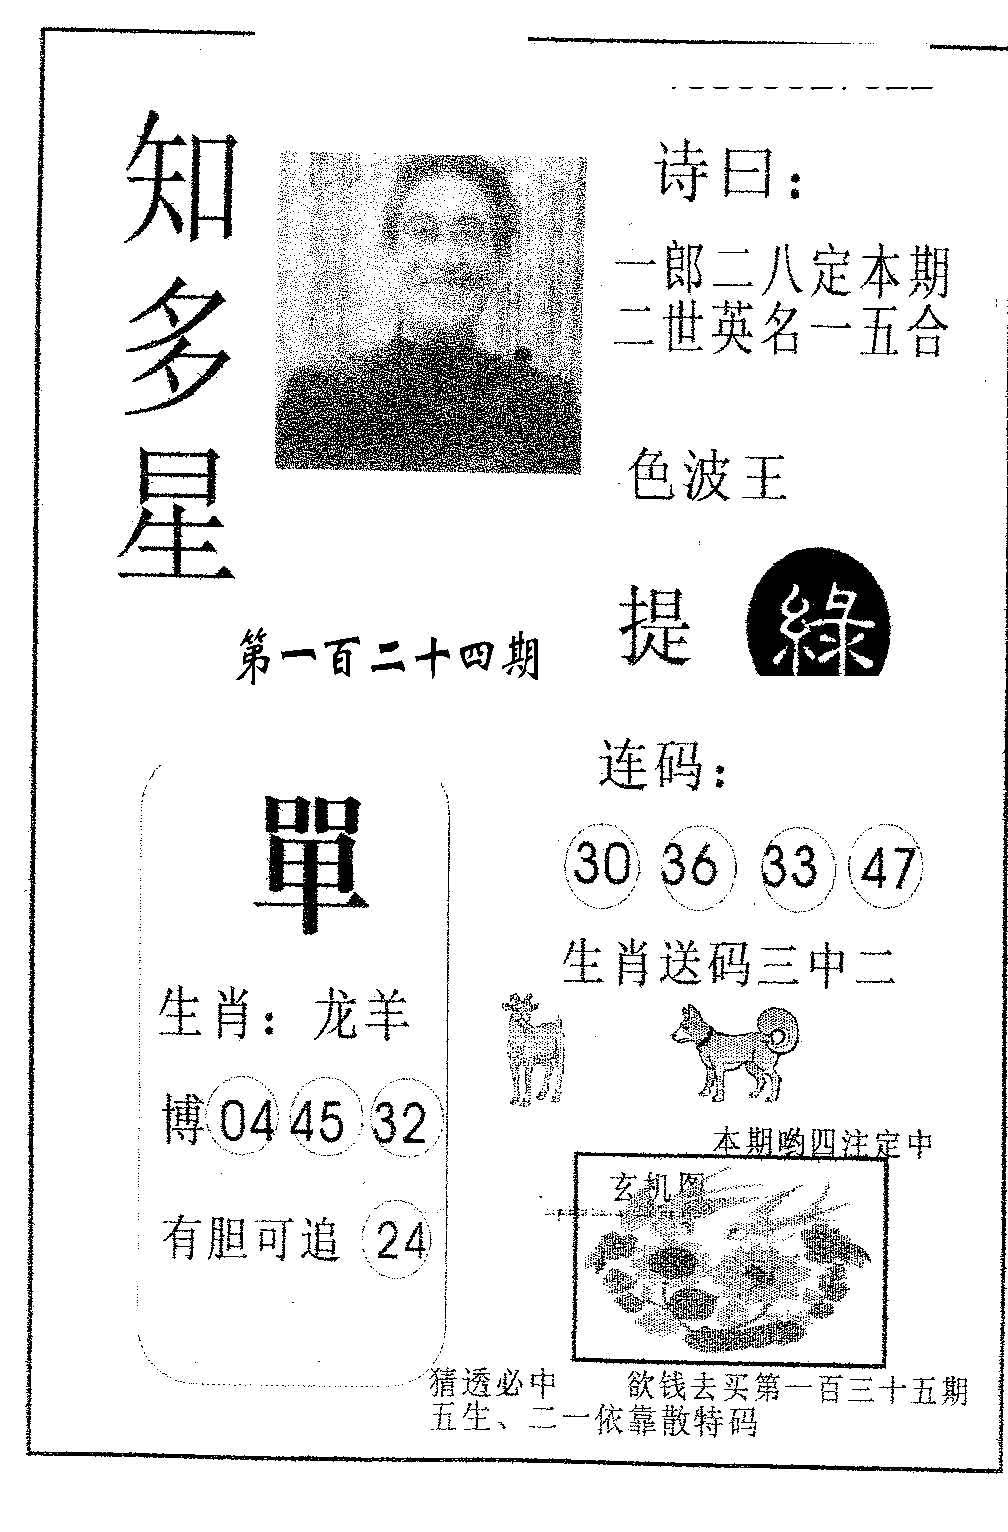 知多星
诗曰：
一郎二八定本期
二世英名一五合
色波王
提 綠
第一百二十四期
單
生肖：龙羊
博 04 45 32
有胆可追 24
连码：
30 36 33 47
生肖送码三中二
本期哟四注定中
玄机图
猜透必中 欲钱去买第一百三十五期
五生、二一依靠散特码